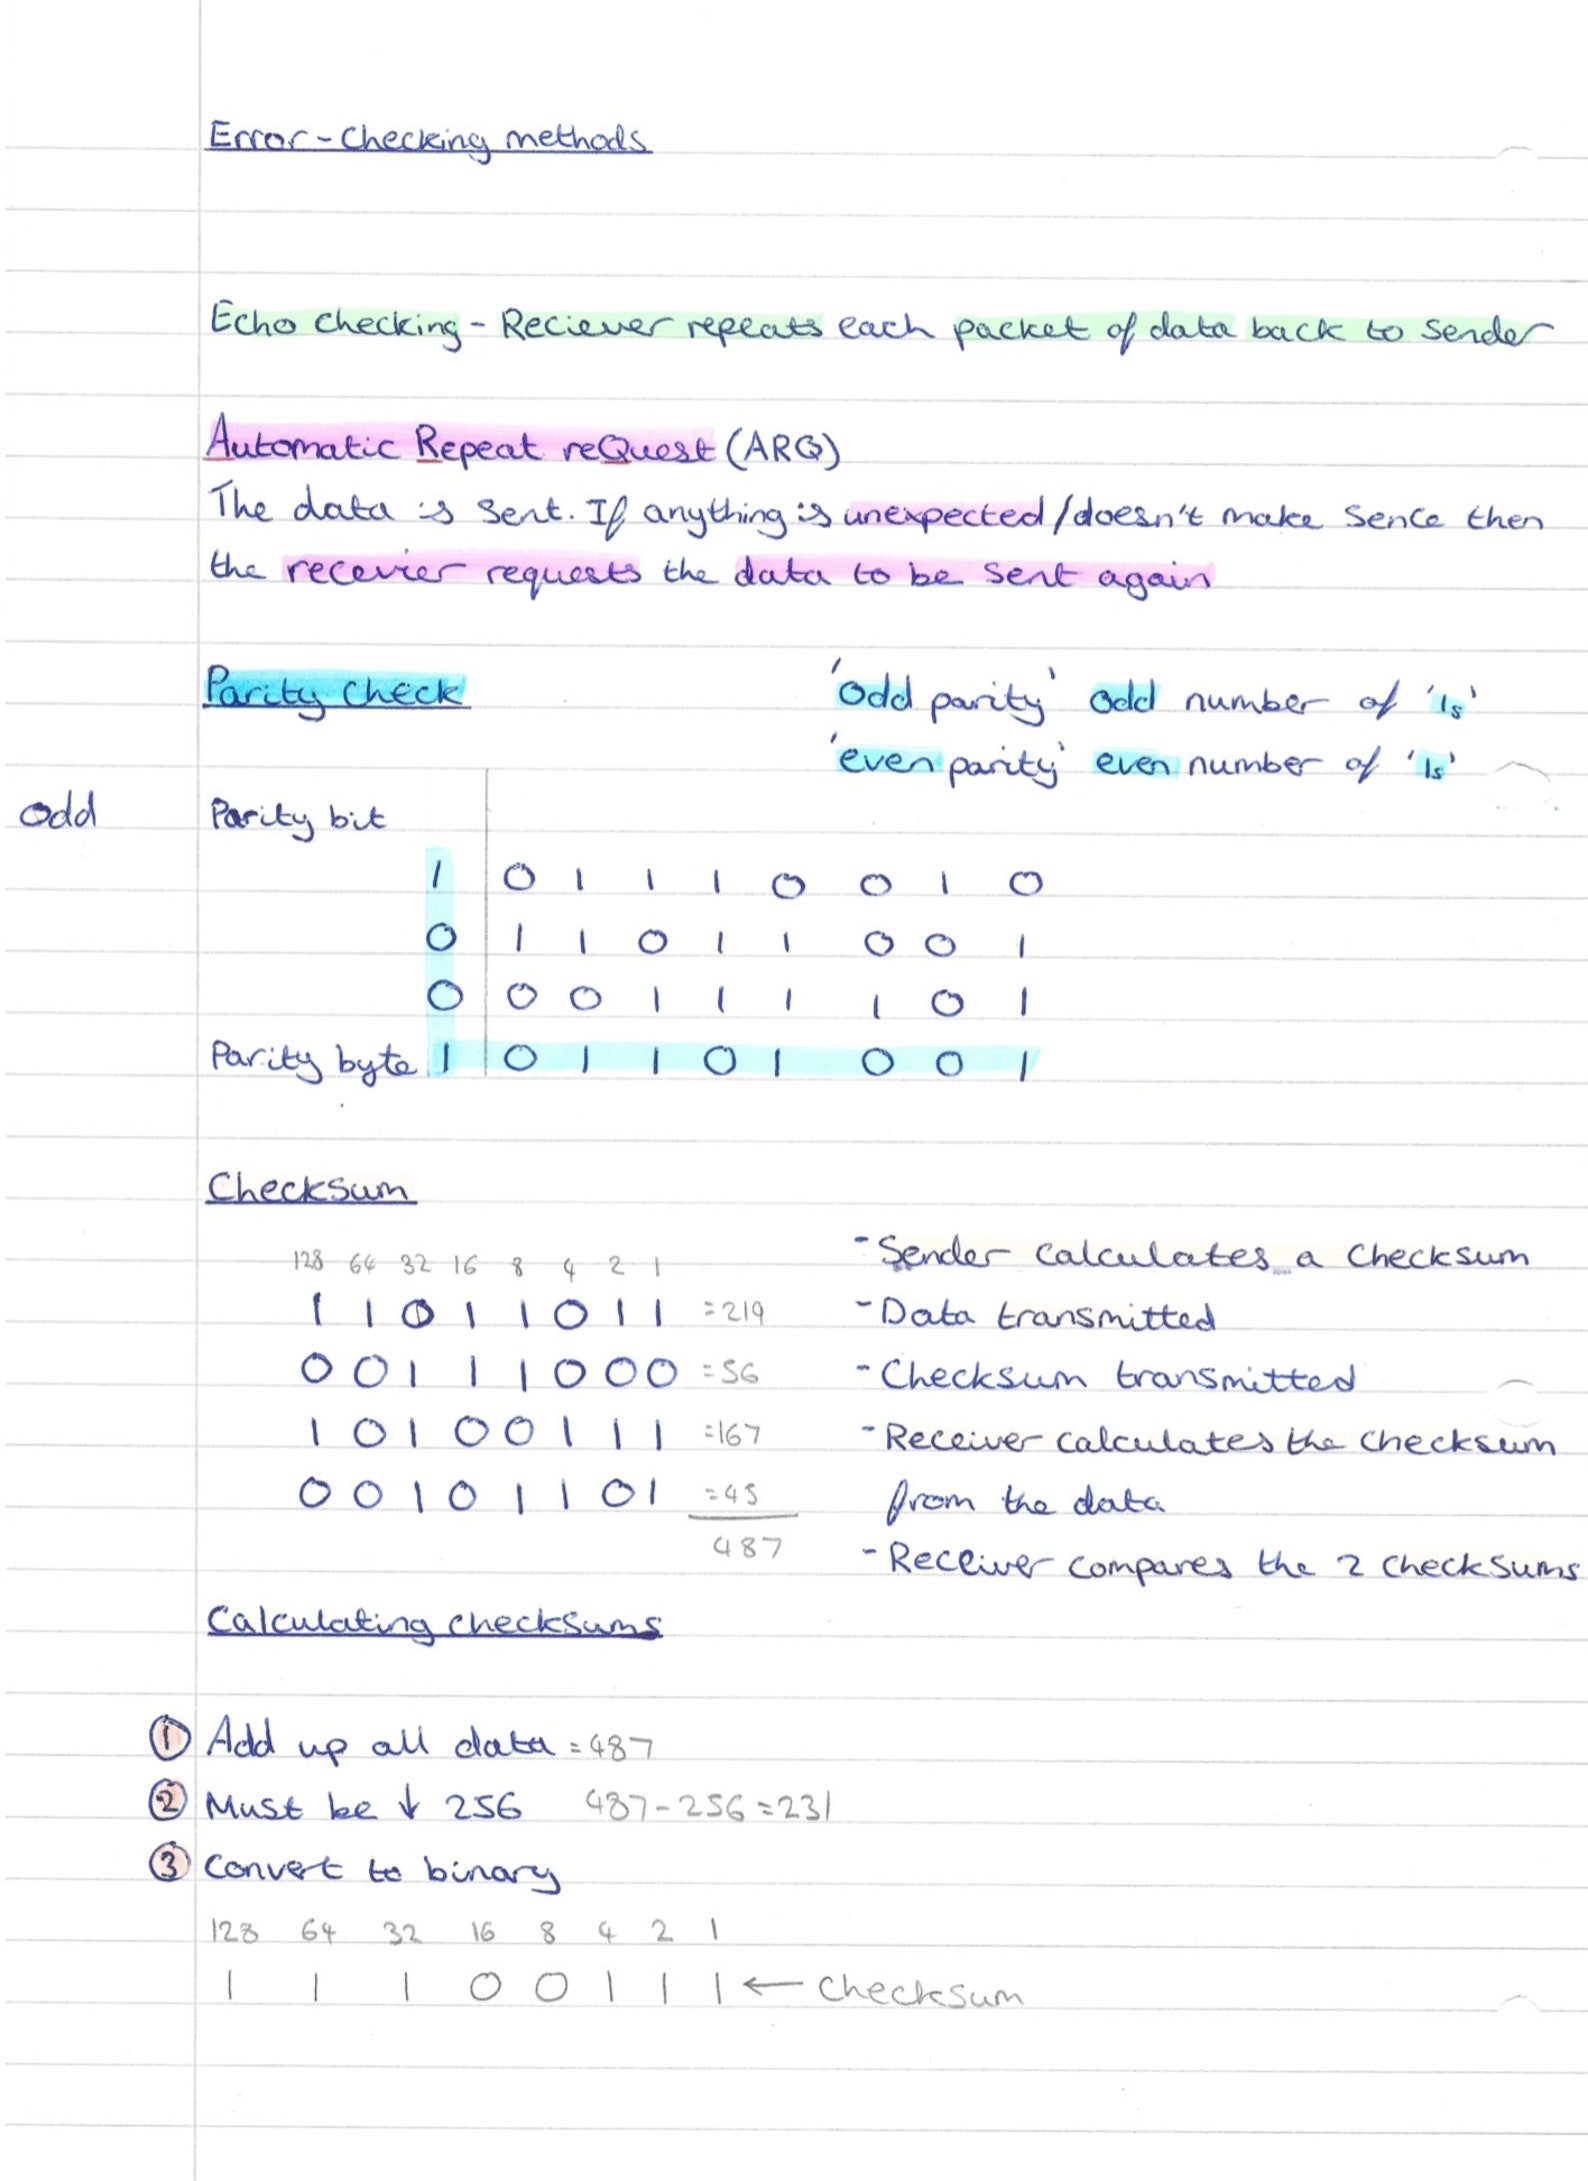 Error-Checking methods
Echo checking - Reciever repeats each packet of data back to sender
Automatic Repeat reQuest (ARQ)
The data is sent. If anything is unexpected/doesn't make sence then
the recevier requests the data to be sent again
Parity check
'odd parity' odd number of '1s'
'even parity' even number of '1s'
odd Parity bit
1 0 1 1 1 0 0 1 0
0 1 1 0 1 1 0 0 1
0 0 0 1 1 1 1 0 1
Parity byte 1 0 1 1 0 1 0 0 1
Checksum
128 64 32 16 8 4 2 1
1 1 0 1 1 0 1 1 =219
0 0 1 1 1 0 0 0 =56
1 0 1 0 0 1 1 1 =167
0 0 1 0 1 1 0 1 =45
487
- Sender calculates a checksum
- Data transmitted
- Checksum transmitted
- Receiver calculates the checksum
from the data
- Receiver compares the 2 checksums
Calculating checksums
1 Add up all data = 487
2 Must be ↓ 256 487-256=231
3 Convert to binary
128 64 32 16 8 4 2 1
1 1 1 0 0 1 1 1 ← Checksum